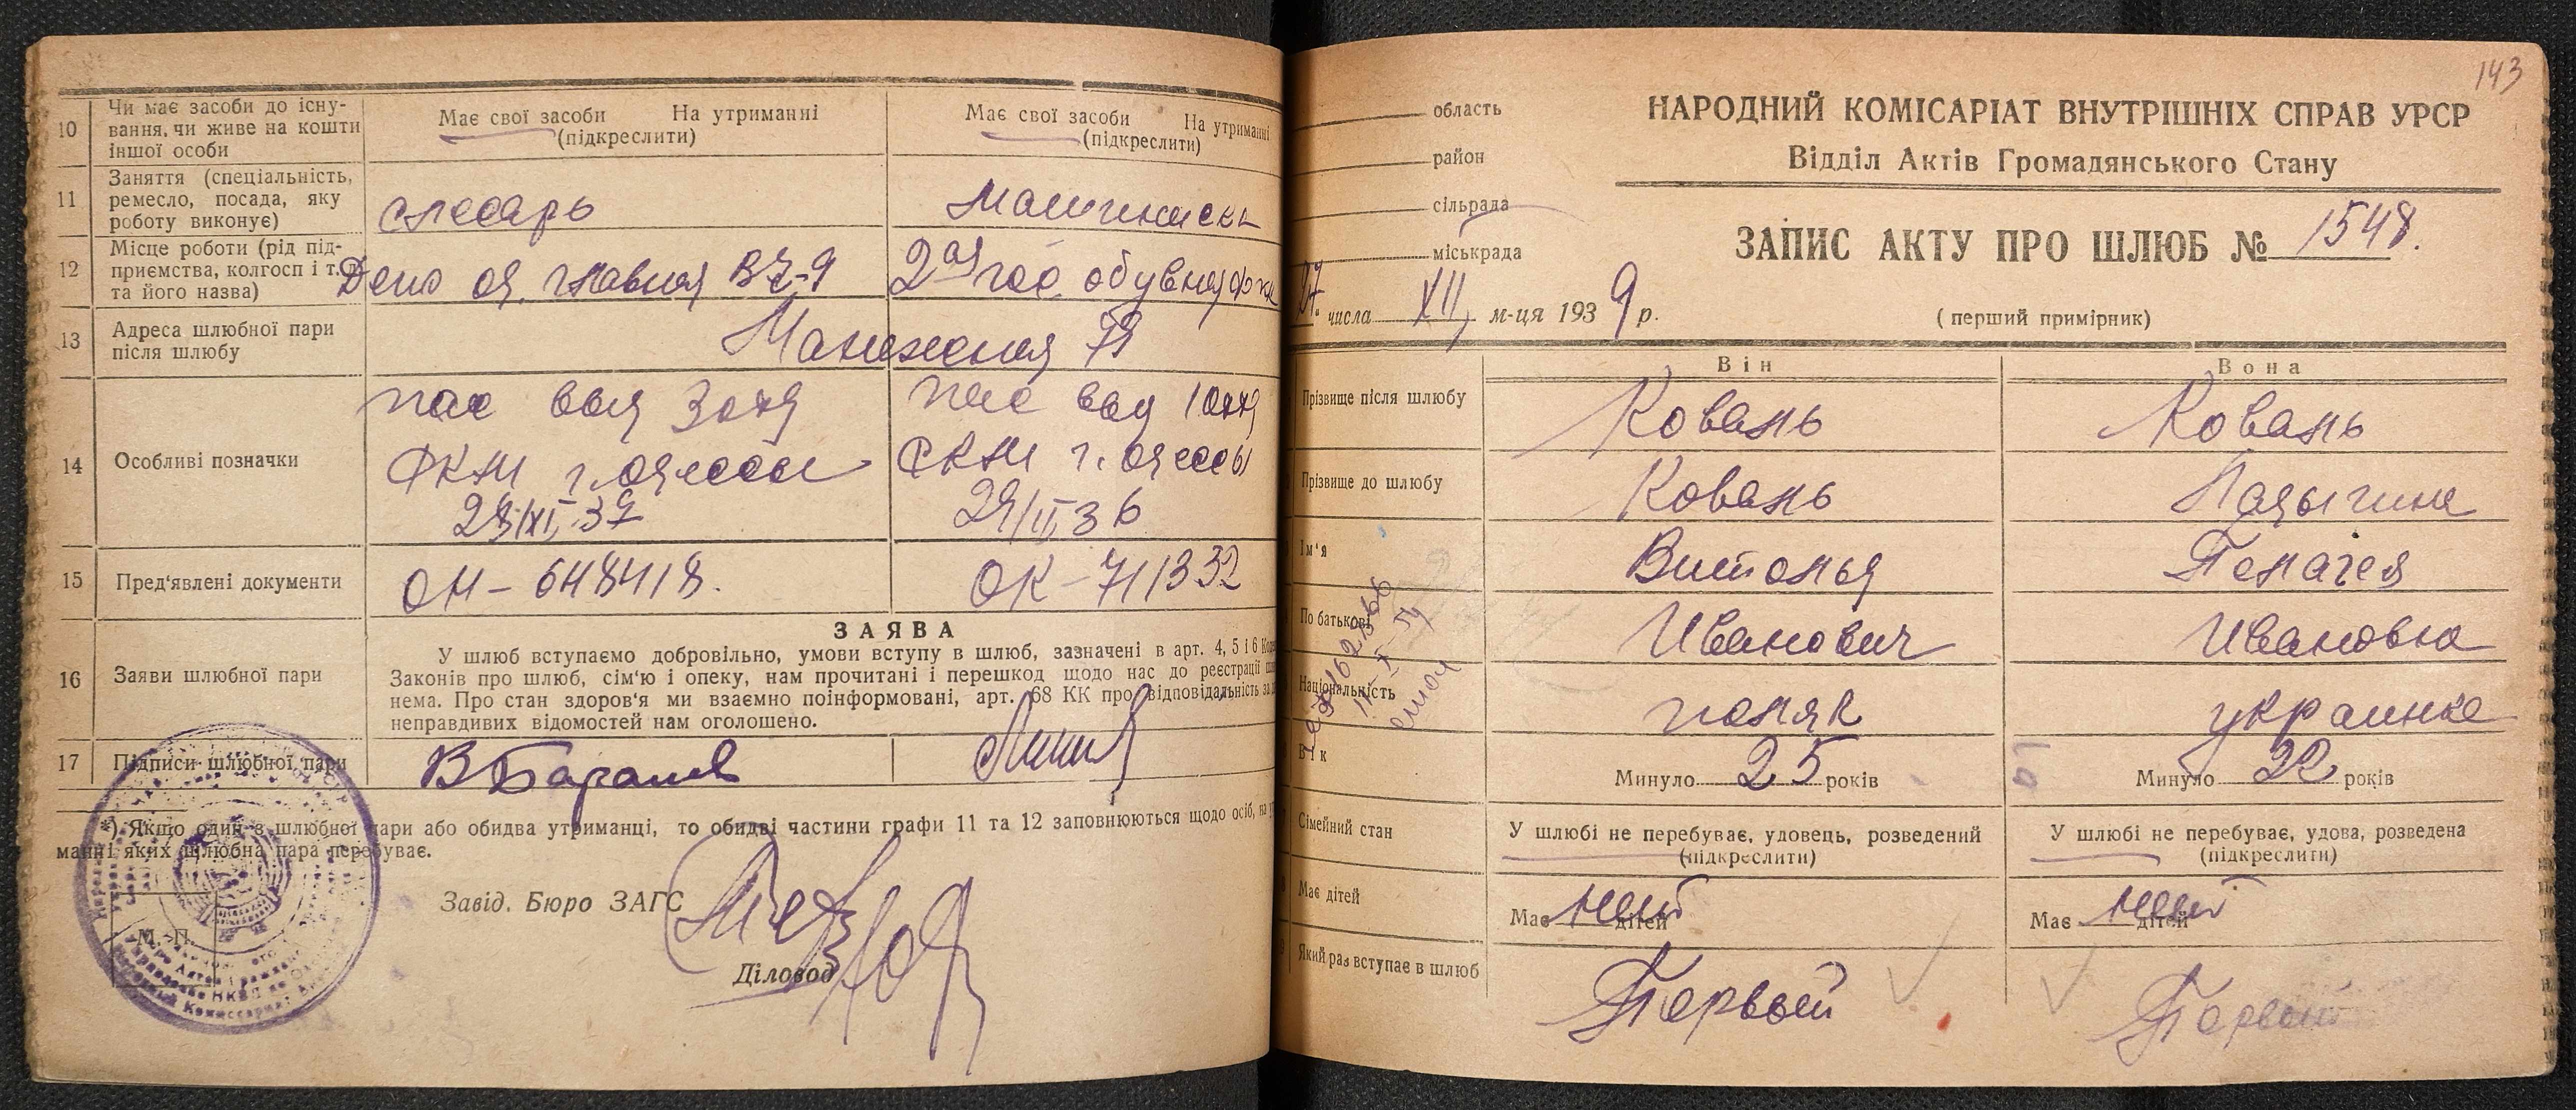 10 Чи має засоби до існу-
вання, чи живе на кошти
іншої особи
Має свої засоби На утриманні
(підкреслити)
Має свої засоби На утриманні
(підкреслити)
11 Заняття (спеціальність,
ремесло, посада, яку
роботу виконує)
слесарь
12 Місце роботи (рід під-
приємства, колгосп і т. д.
та його назва)
Депо
2ая гос. обувная
13 Адреса шлюбної пари
після шлюбу
Манежная
14 Особливі позначки
пас
г. Одессы
37
пас
г. Одессы
29/II 36
15 Пред'явлені документи
ОН - 648418.
ОК - 711332
16 Заяви шлюбної пари
ЗАЯВА
У шлюб вступаємо добровільно, умови вступу в шлюб, зазначені в арт. 4, 5 і 6
Законів про шлюб, сім'ю і опеку, нам прочитані і перешкод щодо нас до реєстрації
нема. Про стан здоров'я ми взаємно поінформовані, арт. 68 КК про відповідальність за
неправдивих відомостей нам оголошено.
17 Підписи шлюбної пари
*) Якщо один з шлюбної пари або обидва утриманці, то обидві частини графи 11 та 12 заповнюються щодо осіб, на
манні яких шлюбна пара перебуває.
Завід. Бюро ЗАГС
М. П.
Діловод
143
область
район
сільрада
міськрада
НАРОДНИЙ КОМІСАРІАТ ВНУТРІШНІХ СПРАВ УРСР
Відділ Актів Громадянського Стану
ЗАПИС АКТУ ПРО ШЛЮБ № 1548.
27. числа XII, м-ця 1939 р.
(перший примірник)
Він
Вона
Прізвище після шлюбу
Ковань
Ковань
Прізвище до шлюбу
Ковань
Ладыгина
Ім'я
Витольд
Пелагея
По батькові
Иванович
Ивановна
Національність
поляк
украинка
Вік
Минуло 25 років
Минуло 22 років
Сімейний стан
У шлюбі не перебуває, удовець, розведений
(підкреслити)
У шлюбі не перебуває, удова, розведена
(підкреслити)
Має дітей
Має нет дітей
Має нет дітей
Який раз вступає в шлюб
Первый
Первый